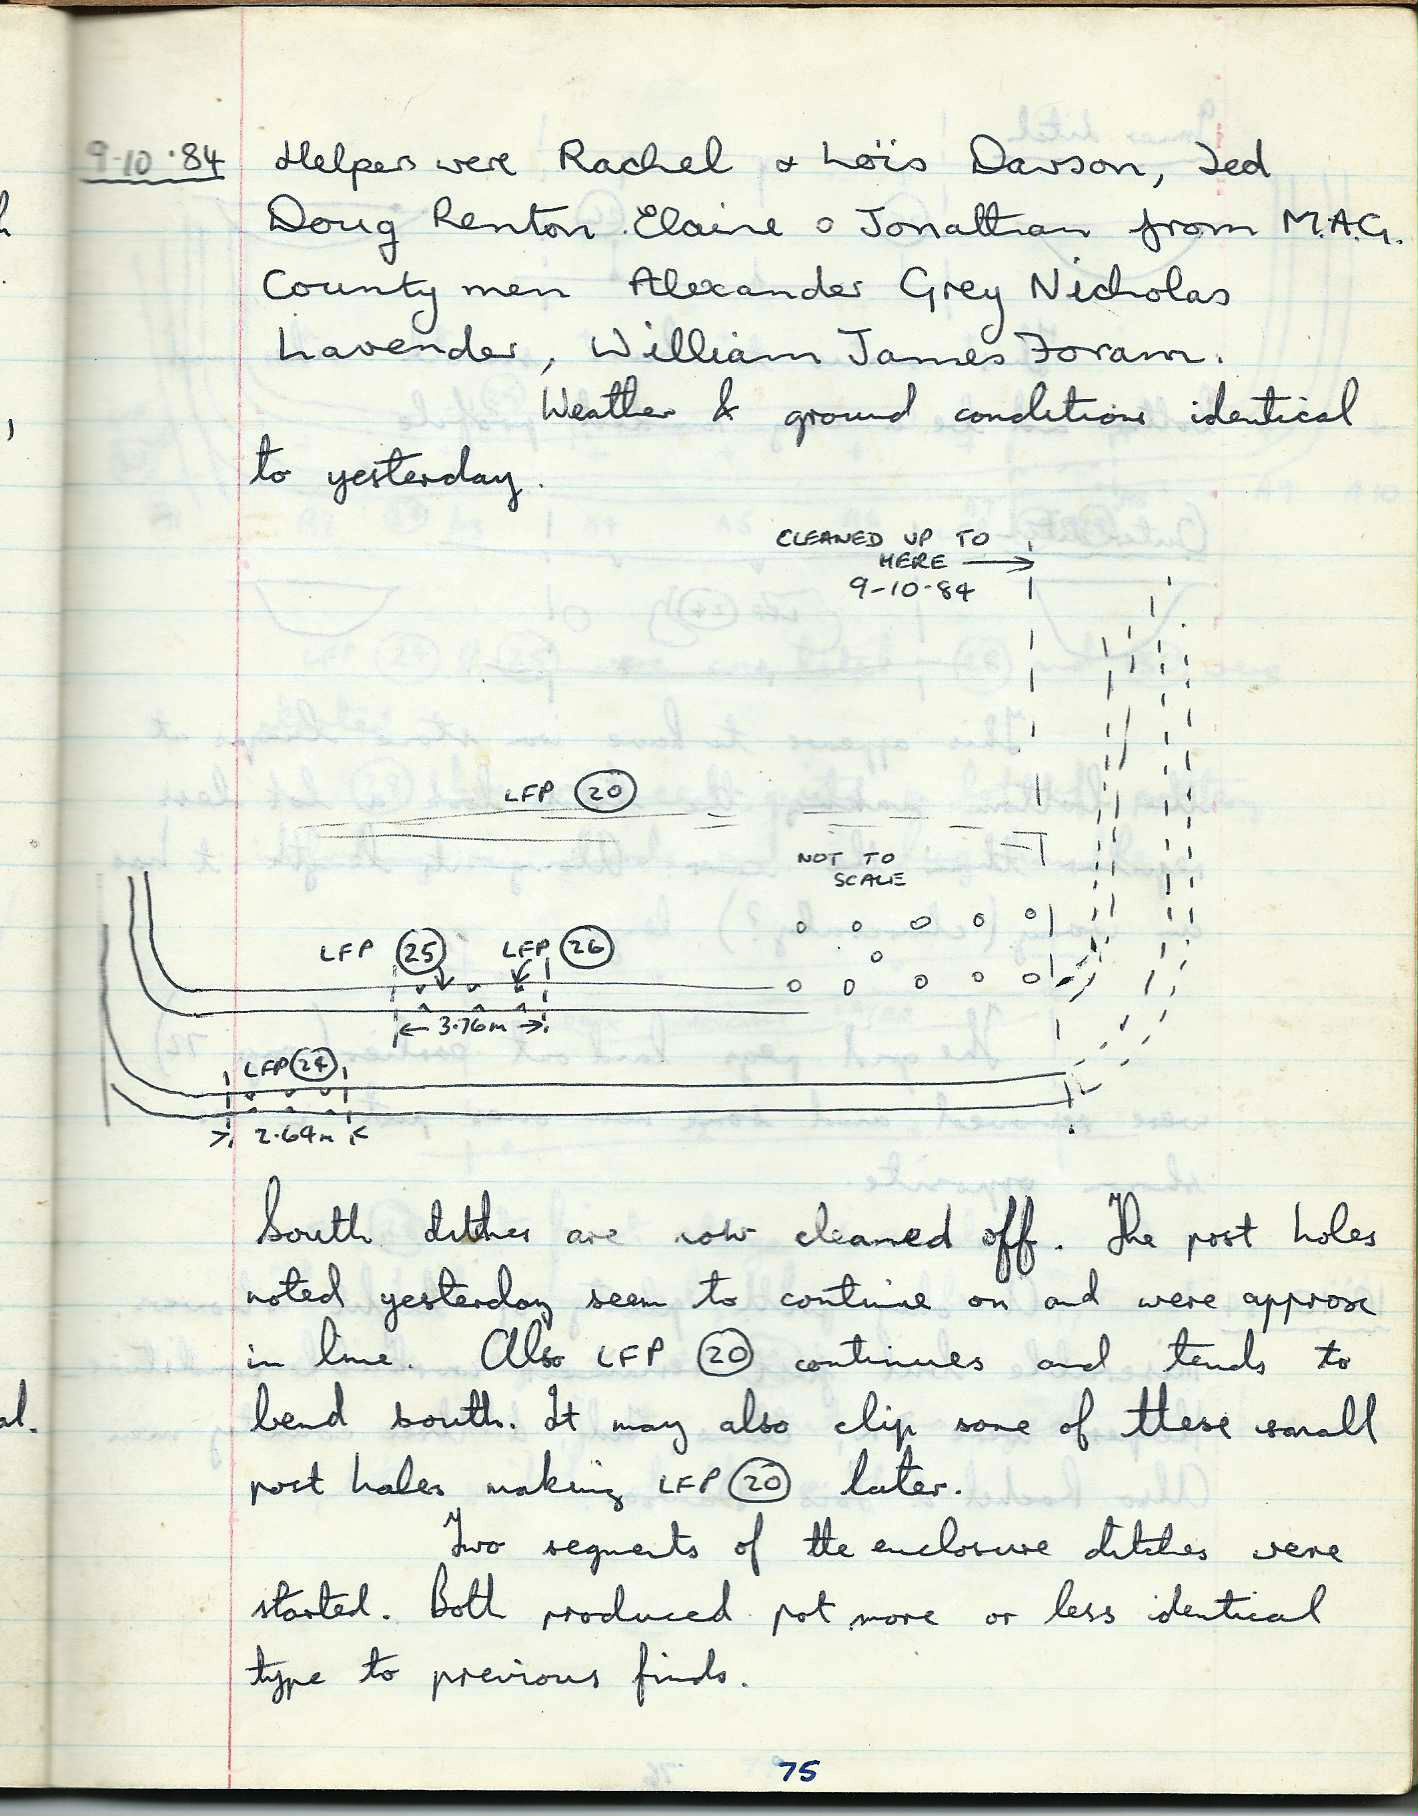 9-10-'84 Helpers were Rachel & Loïs Dawson, Ted
Doug Renton Elaine & Jonathan from M.A.G.
County men Alexander Grey Nicholas
Lavender, William James Foram.
Weather & ground conditions identical
to yesterday.
CLEANED UP TO
HERE →
9-10-84
LFP 20
NOT TO
SCALE
LFP 25 LFP 26
3.76m
LFP 24
2.64m
South ditches are now cleaned off. The post holes
noted yesterday seem to continue on and were approx
in line. Also LFP 20 continues and tends to
bend south. It may also clip some of these small
post holes making LFP 20 later.
Two segments of the enclosure ditches were
started. Both produced pot more or less identical
type to previous finds.
75